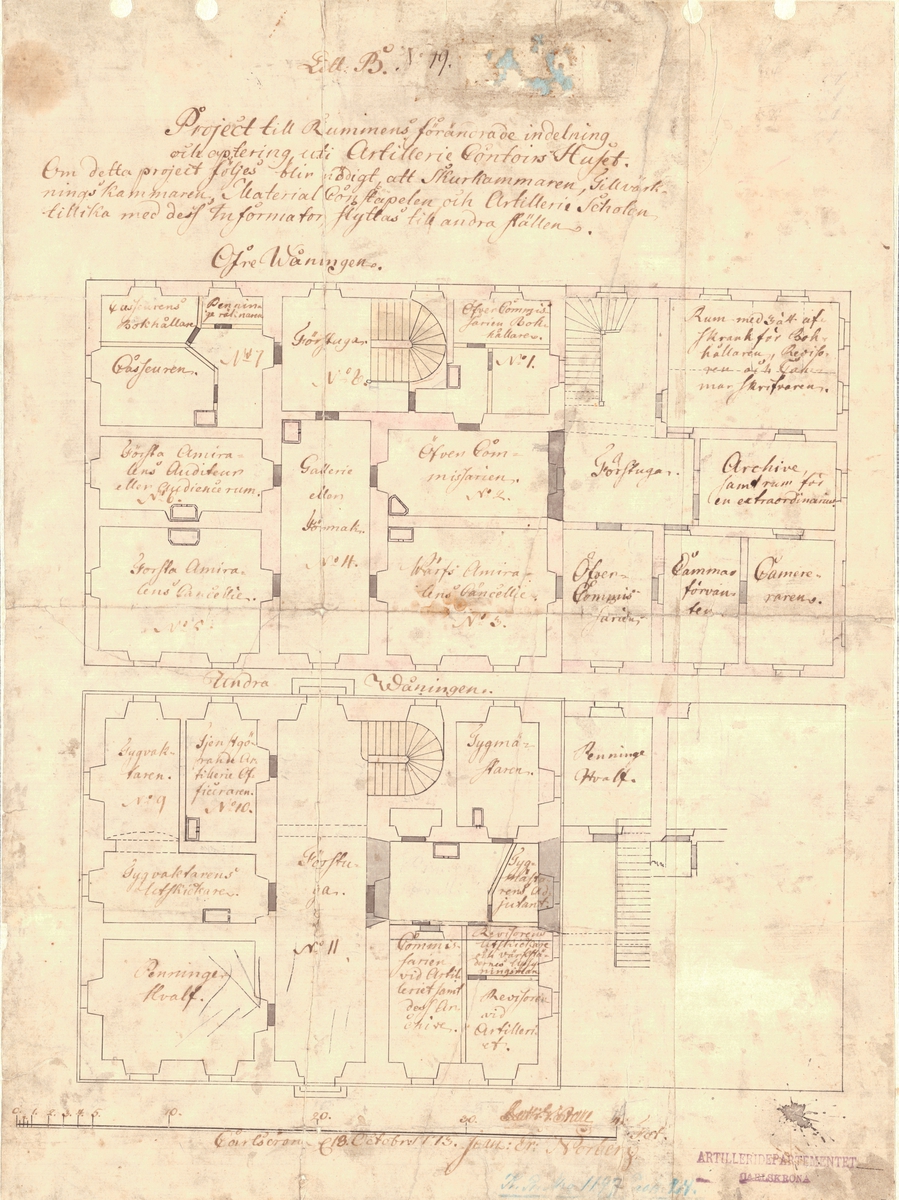 Litt: B. N: 19.
Project till Rummens förändrade indelning
och aptering uti Artillerie Contoirs Huset.
Om detta project följes blir nödigt att Skurkammaren, Tillvärk-
ningskammaren, Material Constapelen och Artillerie Scholan
tillika med dess Informator flyttas till andra ställen.
Öfre Wåningen.
Casseurens
Bokhållare
Casseuren.
No 7
Förstuga.
No 8.
Öfver Commis
sarien Bok-
hållare.
No 1.
Rum med
skrank för Bok-
hållaren, Reviso-
ren och Cam-
marskrifvaren.
Första Amira-
lens Auditeur
eller Audience rum.
No 6.
Gallerie
eller
Förmak.
No 4.
Öfver Com-
missarien.
No 2.
Förstuga.
Archive,
samt rum för
en extraordinarius
Första Amira-
lens Cancellie.
Warfs Amira-
lens Cancellie.
No 3.
Öfver-
Commis
sarien
Cammar
förvan-
ter
Camere-
raren.
Andra Wåningen.
Tygvak-
taren.
No 9
Tjenstgö-
rande Ar-
tillerie Of-
ficeraren.
No 10.
Tygmä-
staren.
Penninge
Hvalf.
Tygvaktarens
Utskickare.
Förstu-
ga.
No 11
Tyg-
mästa-
rens Ad-
jutant.
Penninge
Hvalf.
Commis-
sarien
vid Artil-
leriet samt
dess Ar-
chive.
Revisorens
Utskickare
Revisoren
vid
Artilleri
et.
10. 20. 30.
Carlscrona Octobr
ARTILLERIDEPARTEMENTET
CARLSKRONA